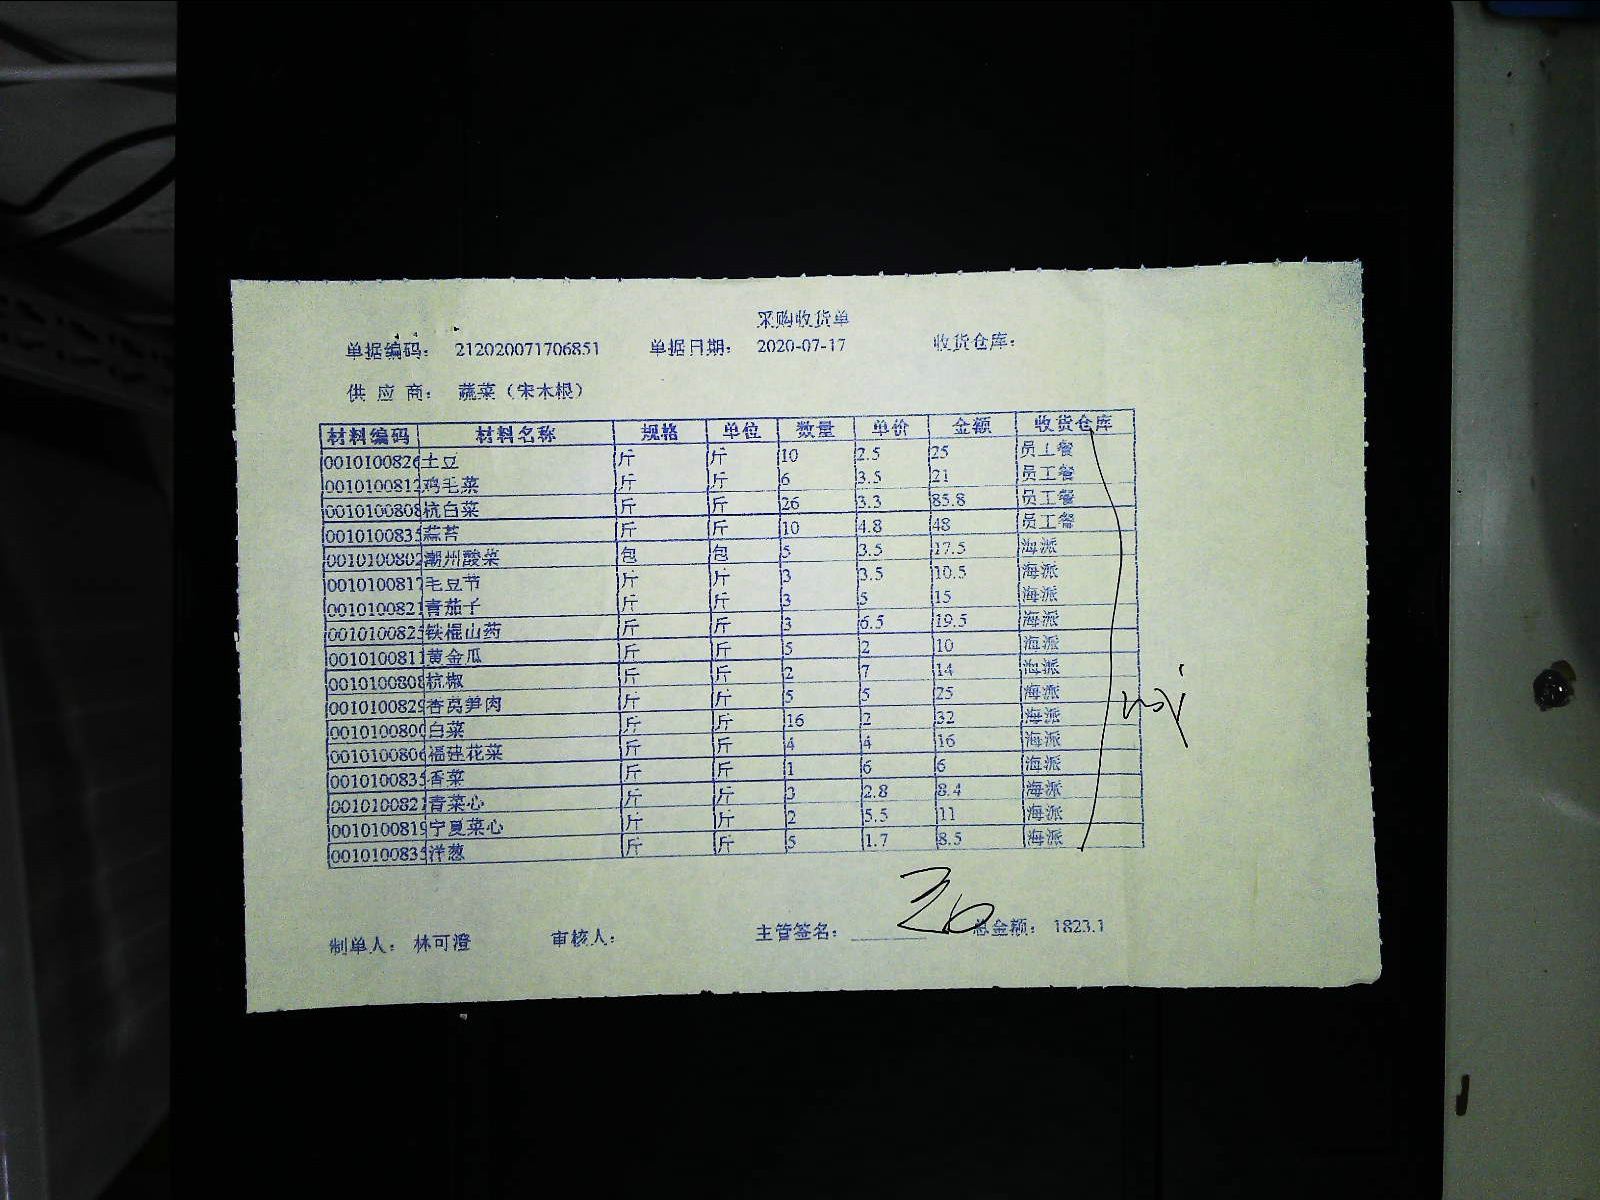 采购收货单
单据编码： 212020071706851 单据日期： 2020-07-17 收货仓库：
供 应 商： 蔬菜（宋木根）
材料编码 材料名称 规格 单位 数量 单价 金额 收货仓库
0010100826 土豆 斤 斤 10 2.5 25 员工餐
0010100812 鸡毛菜 斤 斤 6 3.5 21 员工餐
0010100808 杭白菜 斤 斤 26 3.3 85.8 员工餐
0010100835 蒜苔 斤 斤 10 4.8 48 员工餐
0010100802 潮州酸菜 包 包 5 3.5 17.5 海派
0010100817 毛豆节 斤 斤 3 3.5 10.5 海派
0010100821 青茄子 斤 斤 3 5 15 海派
0010100825 铁棍山药 斤 斤 3 6.5 19.5 海派
0010100811 黄金瓜 斤 斤 5 2 10 海派
0010100808 杭椒 斤 斤 2 7 14 海派
0010100829 香莴笋肉 斤 斤 5 5 25 海派
0010100800 白菜 斤 斤 16 2 32 海派
0010100806 福建花菜 斤 斤 4 4 16 海派
0010100835 香菜 斤 斤 1 6 6 海派
0010100821 青菜心 斤 斤 3 2.8 8.4 海派
0010100819 宁夏菜心 斤 斤 2 5.5 11 海派
0010100835 洋葱 斤 斤 5 1.7 8.5 海派
制单人： 林可澄 审核人： 主管签名： 总金额： 1823.1